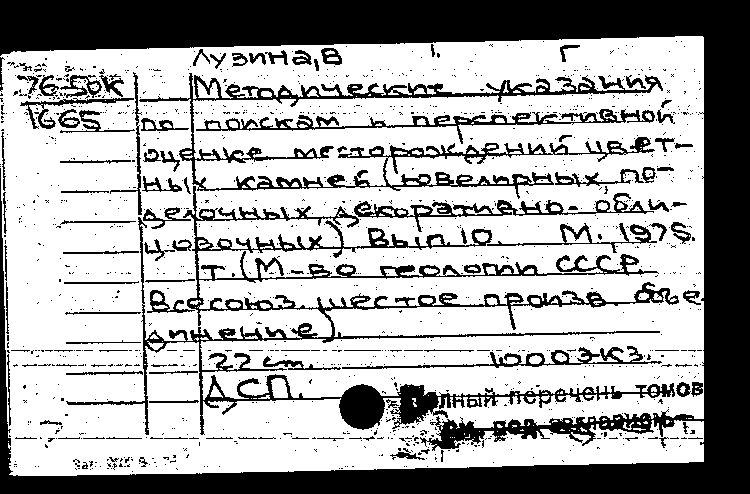 Лузина, В Г
76-50К Методические указания
1665 по поискам и перспективной
оценке месторождений цвет-
ных камней (ювелирных, по-
делочных, декоративно-обли-
цовочных). Вып. 10. М., 1975.
т. (М-во геологии СССР.
Всесоюз. шестое произв. объе-
динение).
22 ст. 1000 экз.
ДСП.
Полный перечень томов
см. под заглавием